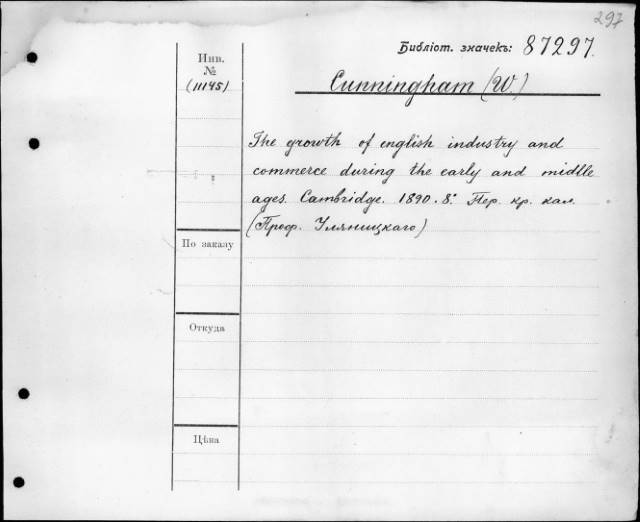 297
Библіот. значекъ: 87297.
Инв.
№
(11145)
Cunningham (W.)
The growth of english industry and
commerce during the early and midlle
ages. Cambridge. 1890. 8.° Пер. кр. кал.
(Проф. Уляницкаго)
По заказу
Откуда
Цѣна